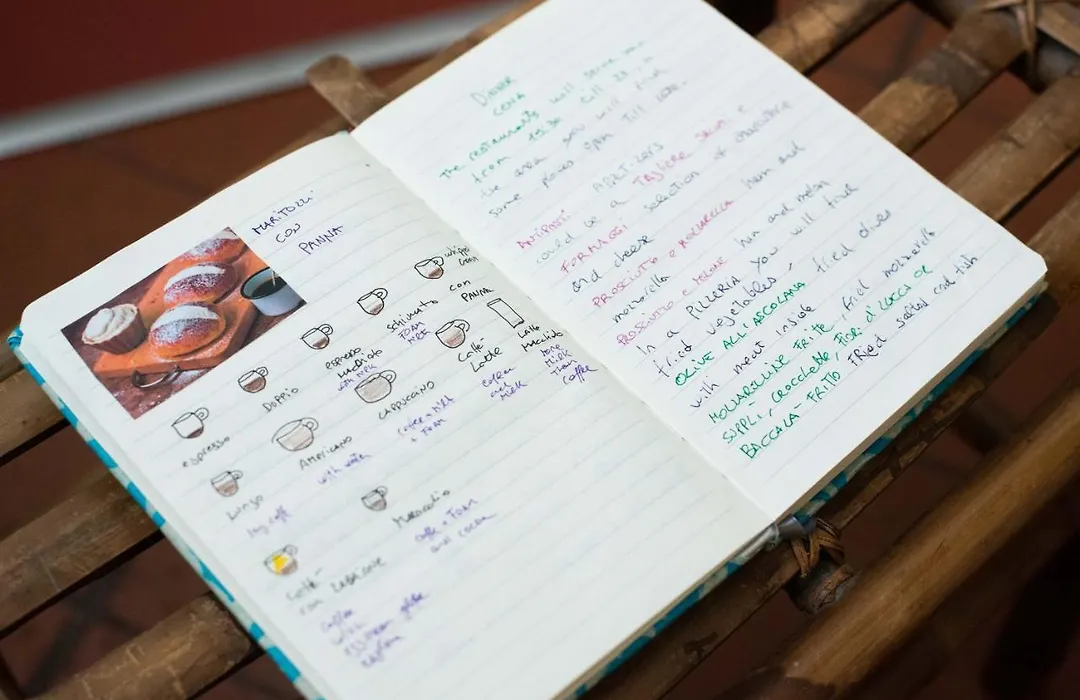 MARITOZZI
CON
PANNA
espresso
Doppio
espresso
Macchiato
with milk
Schiumato
FOAM
MILK
con
PANNA
Lungo
long caffè
Americano
with water
CAPPUCCINO
coffee + milk
+ FOAM
Caffè-
Latte
coffee
and
Milk
Latte
Macchiato
more
Milk
Than
Coffee
Caffè-
coffee
with
Marocchino
Caffè + FOAM
and cocoa
DINNER
CENA
The restaurants will serve
from 19.30 till 23, in
the area you will find
some places open till late.
ANTIPASTI
could be a TAGLIERE SALUMI e
FORMAGGI selection of
and cheese
PROSCIUTTO e MOZZARELLA ham and
mozzarella
PROSCIUTTO e MELONE ham and melon
In a PIZZERIA you will find
fried vegetables, fried olives
OLIVE ALL'ASCOLANA
with meat inside
MOZZARELLINE FRITTE, fried mozzarella
SUPPLÌ, CROCCHETTE, FIORI di ZUCCA OR
BACCALÀ FRITTO FRIED salted cod fish